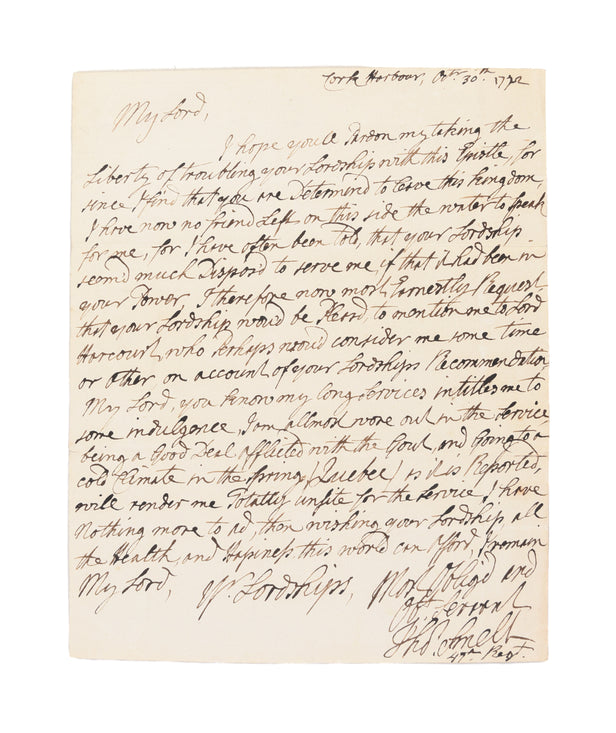 Cork Harbour, Octr. 30th. 1772
My Lord,
I hope you'l Pardon my taking the
Liberty of troubling your Lordship with this Epistle, for
since I find that you are Determend to leave this Kingdom
I have now no friend Left on this side the water to speak
for me, for I have often been told, that your Lordship
seem'd much Disposd to serve me, if that it had been in
your Power, I therefore now most Earnestly Request
that your Lordship woud be Pleasd, to mention me to Lord
Harcourt, who Perhaps woud consider me some time
or other on account of your Lordships Recommendation
My Lord, you know my long Services intitles me to
some indulgence, I am allmost wore out in the Service
being a Good Deal afflicted with the Gout, and Going to a
cold Climate in the spring (Quebec) as it is Reported,
will render me Totally unfite for the service, I have
Nothing more to ad, then wishing your Lordship, all
the Health, and Hapiness this world can Afford, I remain
My Lord, Yr. Lordships, Most Obligd and
Obt. Servant
Thos. Smelt
47th. Regt.